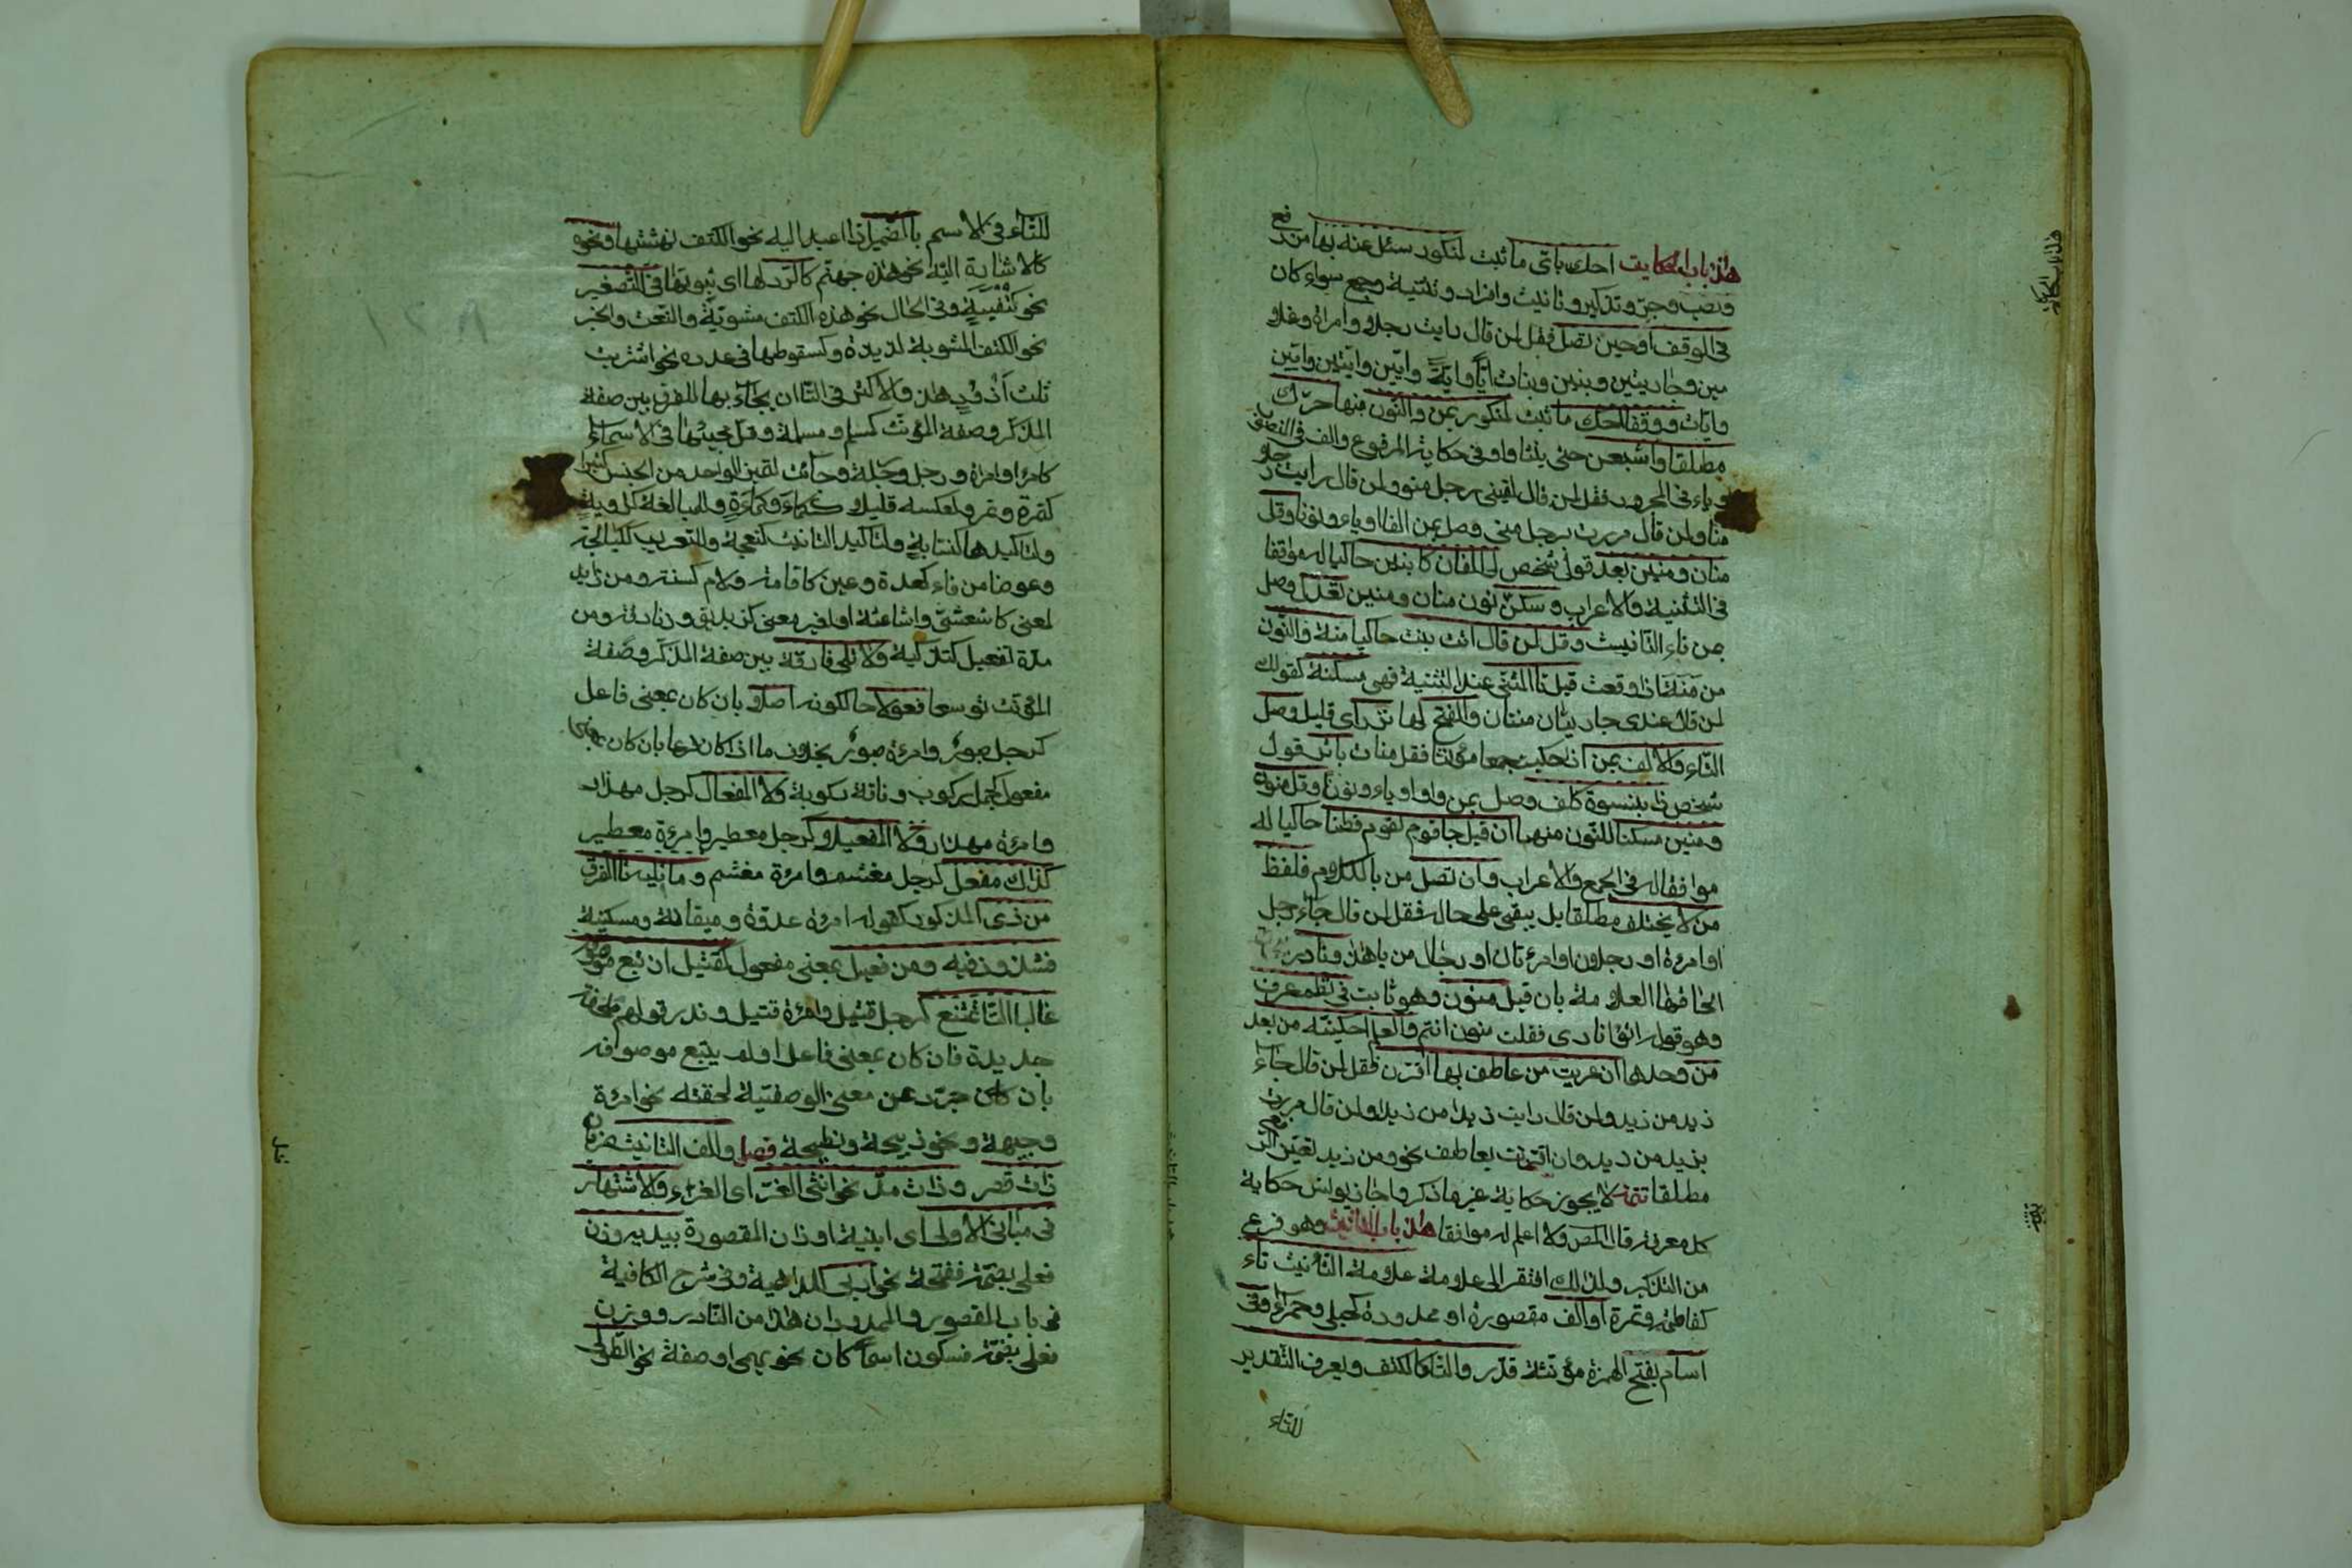 هذا باب الحكاية احك باى ما ثبت لمنكور سئل عنه بها من رفع
ونصب وجر وتذكير وتانيث وافراد وتثنية وجمع سواء كان
فى الوقف او حين تصل فقل لمن قال رايت رجلا وامراة وغلا
مين وجاريتين وبنين وبنات ايا واية وايين وايتين وايين
وايات ووقفا احك ما ثبت لمنكور بمن والنون منها حرك
مطلقا واشبعن حتى ينشا واو فى حكاية المرفوع والف فى المنصوب
وياء فى المجرور فقل لمن قال لقينى رجل منو ولمن قال رايت رجلا
منا ولمن قال مررت برجل منى وصل بمن الفا او ياء ونونا وقل
منان ومنين بعد قول شخص لى الفان كابنين حاكيا له موافقا
فى التثنية والاعراب وسكن نون منان ومنين تعدل وصل
بمن تاء التانيث وقل لمن قال اتت بنت حاكيا منة والنون
من منة اذا وقعت قبل تا المثنى عند التثنية فهى مسكنة كقولك
لمن قال عندى جاريتان منتان والفتح لها نزر اى قليل وصل
التاء والالف بمن اذا حكيت جمعا مؤنثا فقل منات باثر قول
شخص ذا بنسوة كلف وصل بمن واوا او ياء ونونا وقل منون
ومنين مسكنا للنون منهما ان قيل جا قوم لقوم فطنا حاكيا له
موافقا له فى الجمع والاعراب وان تصل من بالكلام فلفظ
من لا يختلف مطلقا بل يبقى على حاله فقل لمن قال جاء رجل
او امرءة او رجلان او امرءتان او رجال من يا هذا ونادر
الحاقها العلامة بان قيل منون وهو ثابت فى نظم عرف
وهو قوله اتوا نارى فقلت منون انتم والعلم احكينه من بعد
من وحدها ان عريت من عاطف بها اقترن فقل لمن قال جاء
زيد من زيد ولمن قال رايت زيدا من زيدا ولمن قال مررت
بزيد من زيد وان اقترنت بعاطف نحو ومن زيد تعين الرفع
مطلقا تتمة لا يجوز حكاية غير ما ذكر واجاز يونس حكاية
كل معرفة قال المص ولا اعلم له موافقا هذا باب التانيث وهو فرع
من التذكير ولذلك افتقر الى علامة علامة التانيث تاء
كفاطمة وتمرة او الف مقصورة او ممدودة كحبلى وحمراء وفى
اسام بفتح الهمزة مؤنثة قدر والتا كالكتف ويعرف التقدير
للتاء
للتاء فى الاسم بالضمير اذا اعيد اليه نحو الكتف نهشتها ونحوه
كالاشارة اليه نحو هذه جهنم كالرد لها اى ثبوتها فى التصغير
نحو كتيفية وفى الحال نحو هذه الكتف مشوية والنعت والخبر
نحو الكتف المشوية لذيذة وكسقوطها فى عدده نحو اشتريت
ثلث اذود هذا والاكثر فى التا ان يجاء بها للفرق بين صفة
المذكر وصفة المؤنث كمسلم ومسلمة وقل مجيئها فى الاسماء
كامرء وامراة ورجل ورجلة وجائت لتميز الواحد من الجنس كثيرا
كتمرة وتمر ولعكسه قليلا ككماء وكماءة وللمبالغة كراوية
ولتاكيدها كنسابة ولتاكيد التانيث كنعجة وللتعريب ككيالجة
وعوضا من فاء كعدة وعين كاقامة ولام كسنة ومن زايد
لمعنى كاشعثى واشاعثة او لغير معنى كزنديق وزنادقة ومن
مدة تفعيل كتزكية ولا تلى فارقة بين صفة المذكر وصفة
المؤنث توسعا فعولا حالكونه اصلا بان كان بمعنى فاعل
كرجل صبور وامرءة صبور بخلاف ما اذا كان فرعا بان كان بمعنى
مفعول كجمل ركوب وناقة ركوبة ولا المفعال كرجل مهذار
وامرءة مهذار ولا المفعيلا كرجل معطير وامرءة معطير
كذاك مفعل كرجل مغشم وامرءة مغشم وما تليه تا الفرق
من ذى المذكور كقوله امرءة عدوة وميقانة ومسكينة
فشذوذ فيه ومن فعيل بمعنى مفعول كقتيل ان تبع موصوفه
غالبا التا تمتنع كرجل قتيل وامرءة قتيل وندر قولهم ملحفة
جديدة فان كان بمعنى فاعل او لم يتبع موصوفه
بان كان جرد عن معنى الوصفية لحقته نحو امرءة
وجيهة ونحو ذبيحة ونطيحة فصل والف التانيث ضربان
ذات قصر وذات مد نحو انثى الغر اى الغراء والاشتهار
فى مبانى الاولى اى ابنية اوزان المقصورة يبديه وزن
فعلى بضمة ففتحة نحو اربى للداهية وفى شرح الكافية
فى باب المقصور والممدود ان هذا من النادر ووزن
فعلى بضمة فسكون اسما كان نحو بهمى او صفة نحو الطولى